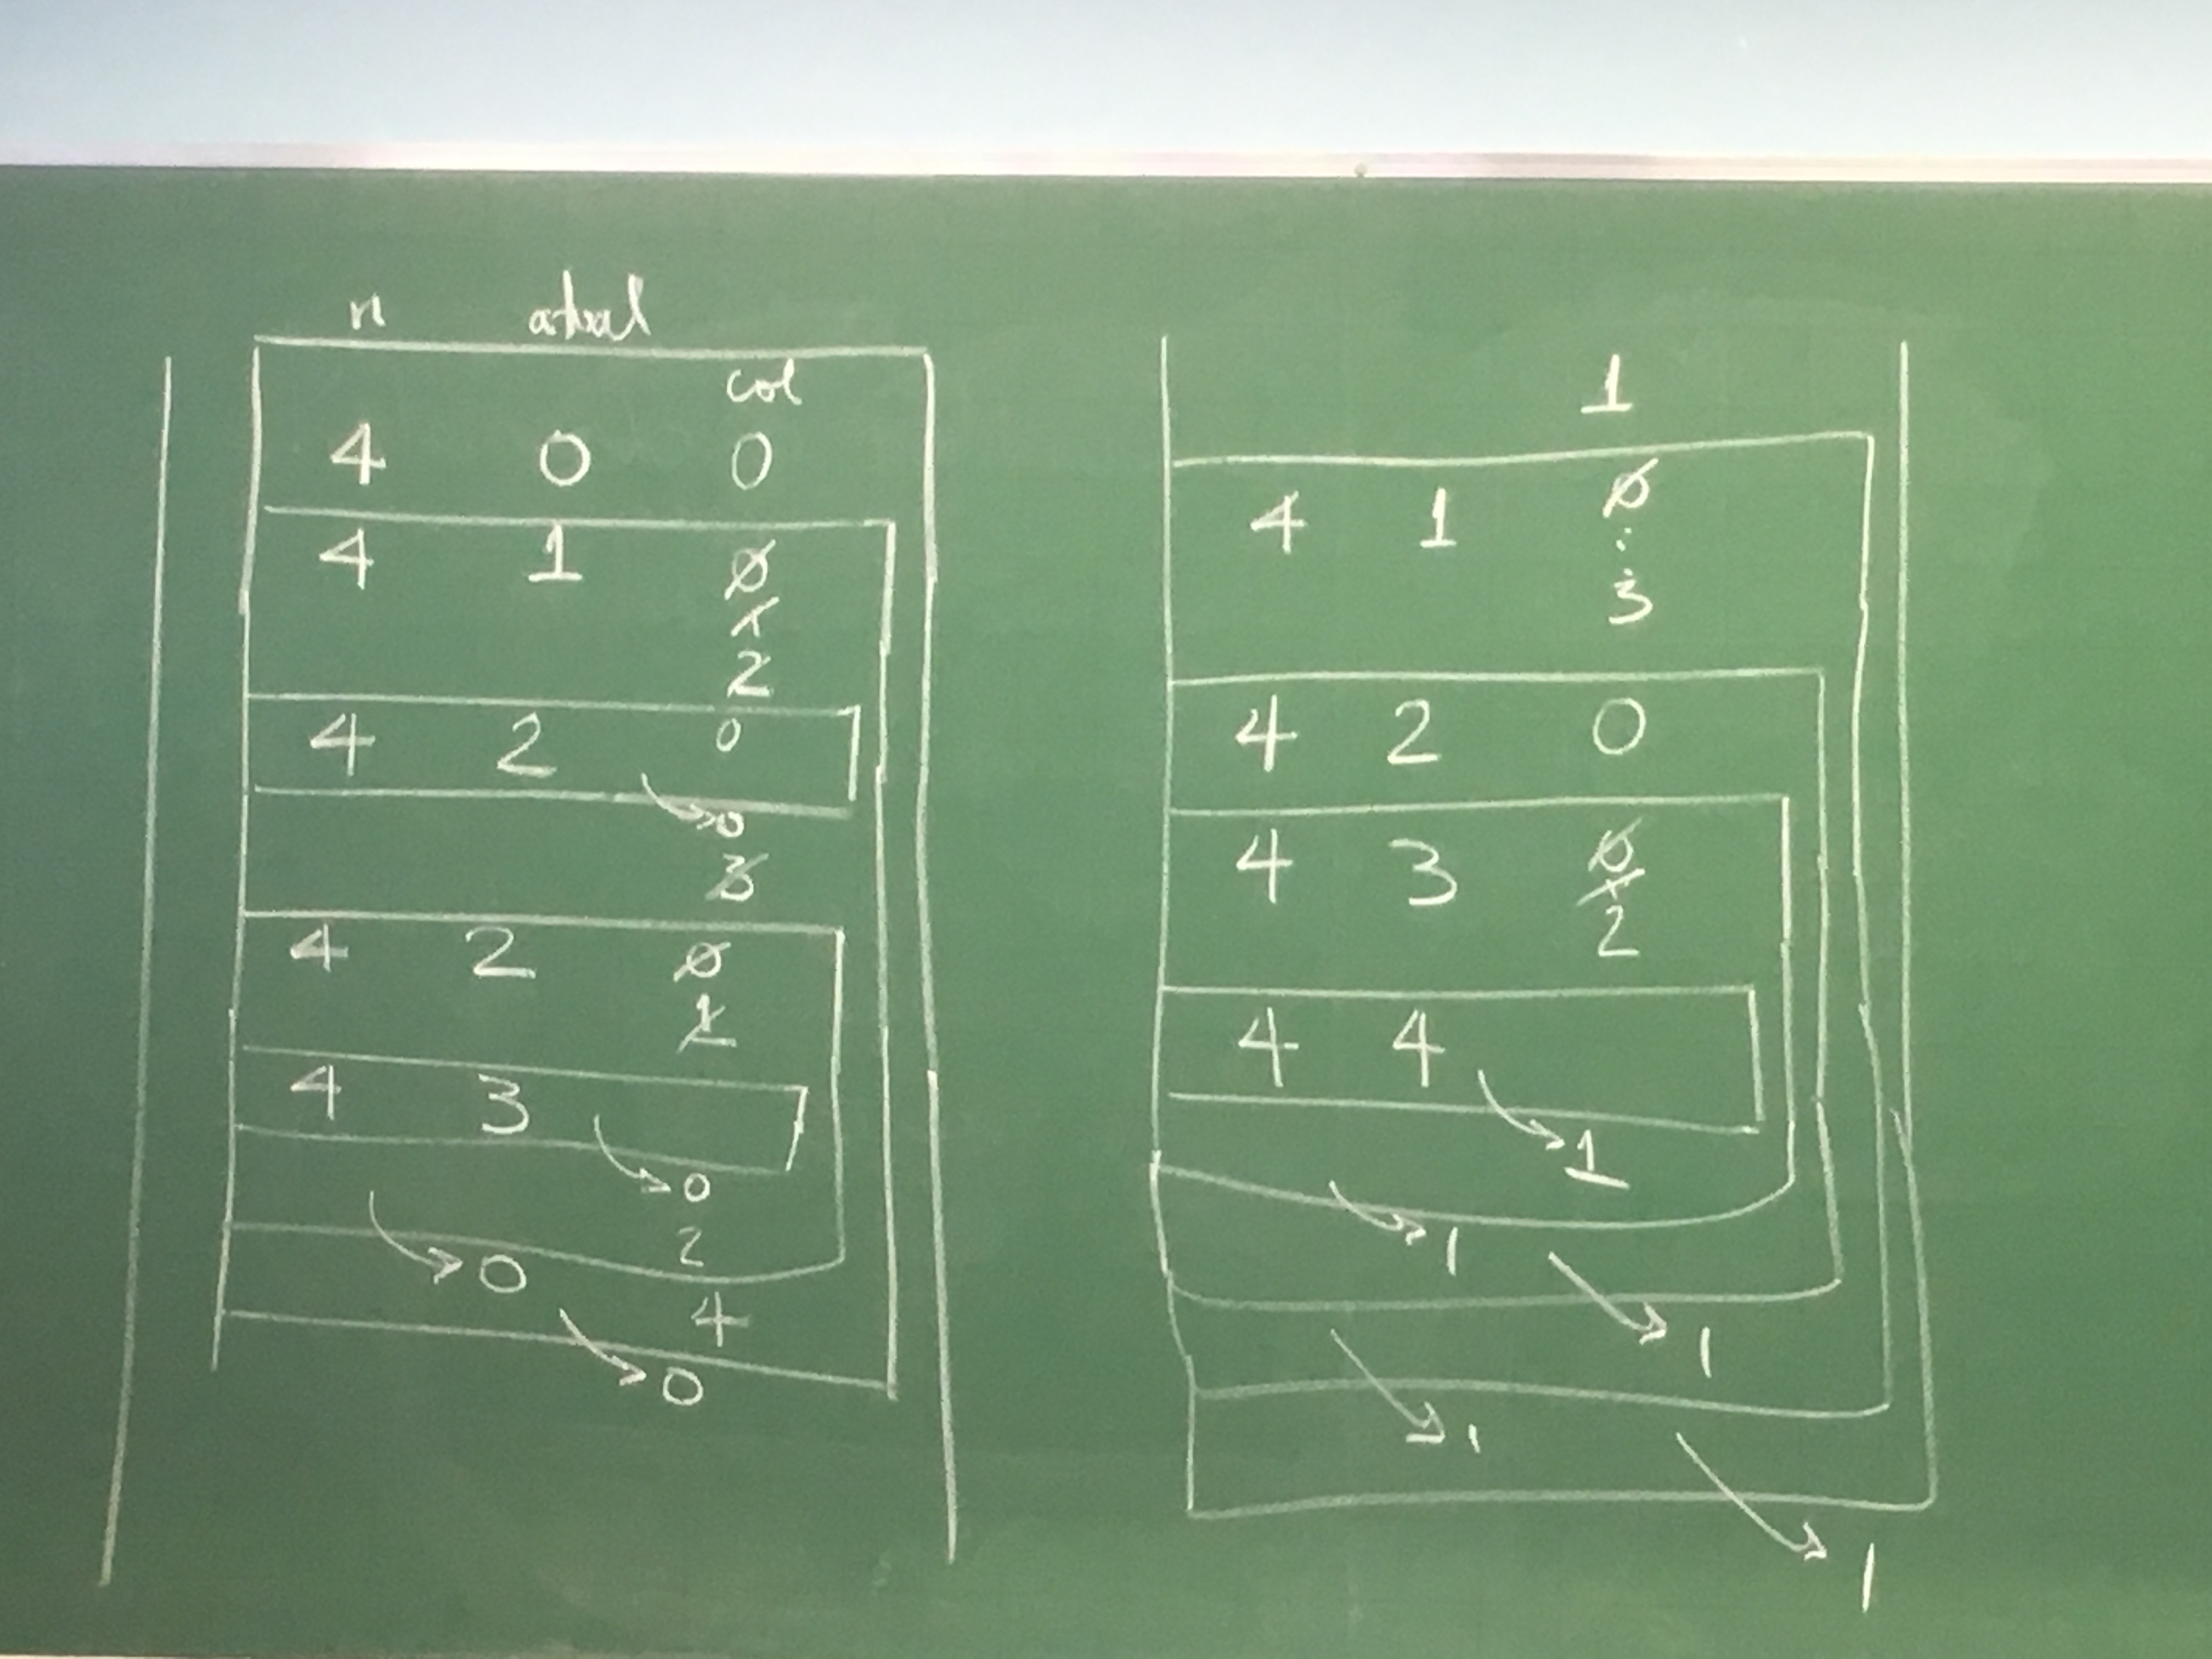 n atual
col
4 0 0
4 1 0
1
2
4 2 0
0
3
4 2 0
1
4 3
0
2
0
4
0
1
4 1 0
:
3
4 2 0
4 3 0
1
2
4 4
1
1
1
1
1